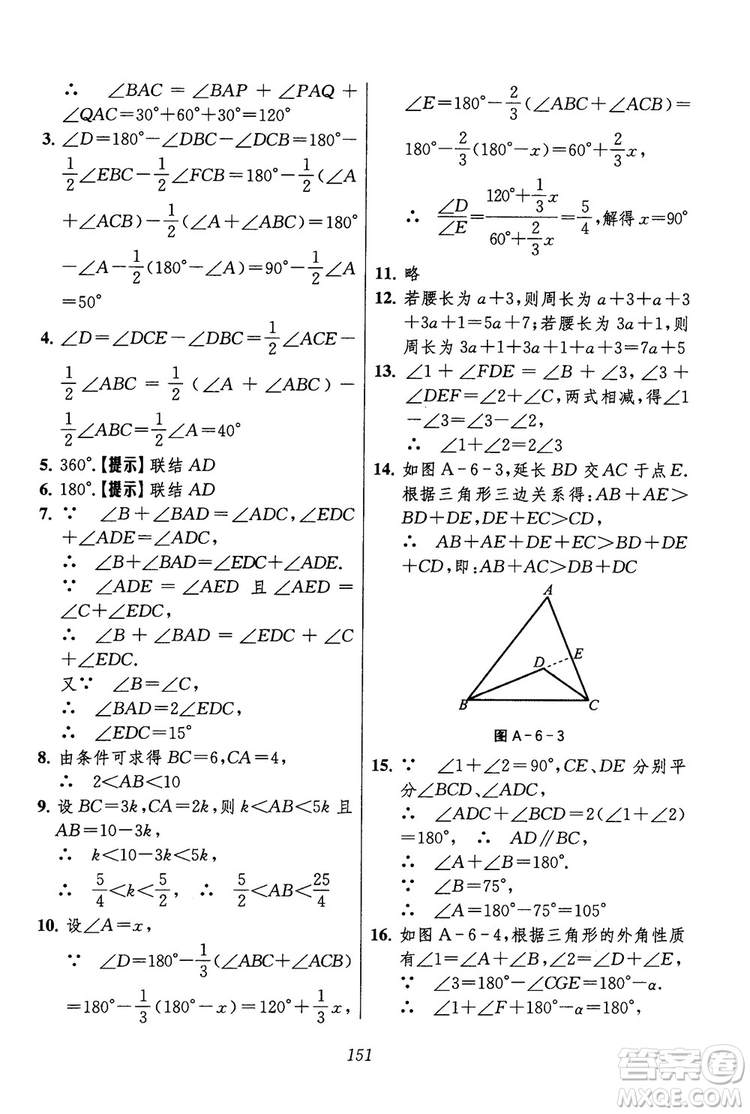 ∴ ∠BAC = ∠BAP + ∠PAQ +
∠QAC=30°+60°+30°=120°
3. ∠D=180°-∠DBC-∠DCB=180°-
1/2∠EBC-1/2∠FCB=180°-1/2(∠A
+∠ACB)-1/2(∠A+∠ABC)=180°
-∠A-1/2(180°-∠A)=90°-1/2∠A
=50°
4. ∠D=∠DCE-∠DBC=1/2∠ACE-
1/2∠ABC = 1/2(∠A + ∠ABC) -
1/2∠ABC=1/2∠A=40°
5. 360°.【提示】联结 AD
6. 180°.【提示】联结 AD
7. ∵ ∠B+∠BAD=∠ADC,∠EDC
+∠ADE=∠ADC,
∴ ∠B+∠BAD=∠EDC+∠ADE.
∵ ∠ADE = ∠AED 且 ∠AED =
∠C+∠EDC,
∴ ∠B + ∠BAD = ∠EDC + ∠C
+∠EDC.
又∵ ∠B=∠C,
∴ ∠BAD=2∠EDC,
∴ ∠EDC=15°
8. 由条件可求得 BC=6,CA=4,
∴ 2<AB<10
9. 设 BC=3k,CA=2k,则 k<AB<5k 且
AB=10-3k,
∴ k<10-3k<5k,
∴ 5/4<k<5/2, ∴ 5/2<AB<25/4
10. 设∠A=x,
∵ ∠D=180°-1/3(∠ABC+∠ACB)
=180°-1/3(180°-x)=120°+1/3x,
∠E=180°-2/3(∠ABC+∠ACB)=
180°-2/3(180°-x)=60°+2/3x,
∴ ∠D/∠E=(120°+1/3x)/(60°+2/3x)=5/4,解得 x=90°
11. 略
12. 若腰长为 a+3,则周长为 a+3+a+3
+3a+1=5a+7;若腰长为 3a+1,则
周长为 3a+1+3a+1+a+3=7a+5
13. ∠1 + ∠FDE = ∠B + ∠3, ∠3 +
∠DEF=∠2+∠C,两式相减,得∠1
-∠3=∠3-∠2,
∴ ∠1+∠2=2∠3
14. 如图 A-6-3,延长 BD 交 AC 于点 E.
根据三角形三边关系得:AB+AE>
BD+DE,DE+EC>CD,
∴ AB+AE+DE+EC>BD+DE
+CD,即:AB+AC>DB+DC
A
D
E
B
C
图 A-6-3
15. ∵ ∠1+∠2=90°,CE、DE 分别平
分∠BCD、∠ADC,
∴ ∠ADC+∠BCD=2(∠1+∠2)
=180°, ∴ AD∥BC,
∴ ∠A+∠B=180°.
∵ ∠B=75°,
∴ ∠A=180°-75°=105°
16. 如图 A-6-4,根据三角形的外角性质
有∠1=∠A+∠B,∠2=∠D+∠E,
∵ ∠3=180°-∠CGE=180°-α.
∴ ∠1+∠F+180°-α=180°,
151
答案圈
MXQE.COM